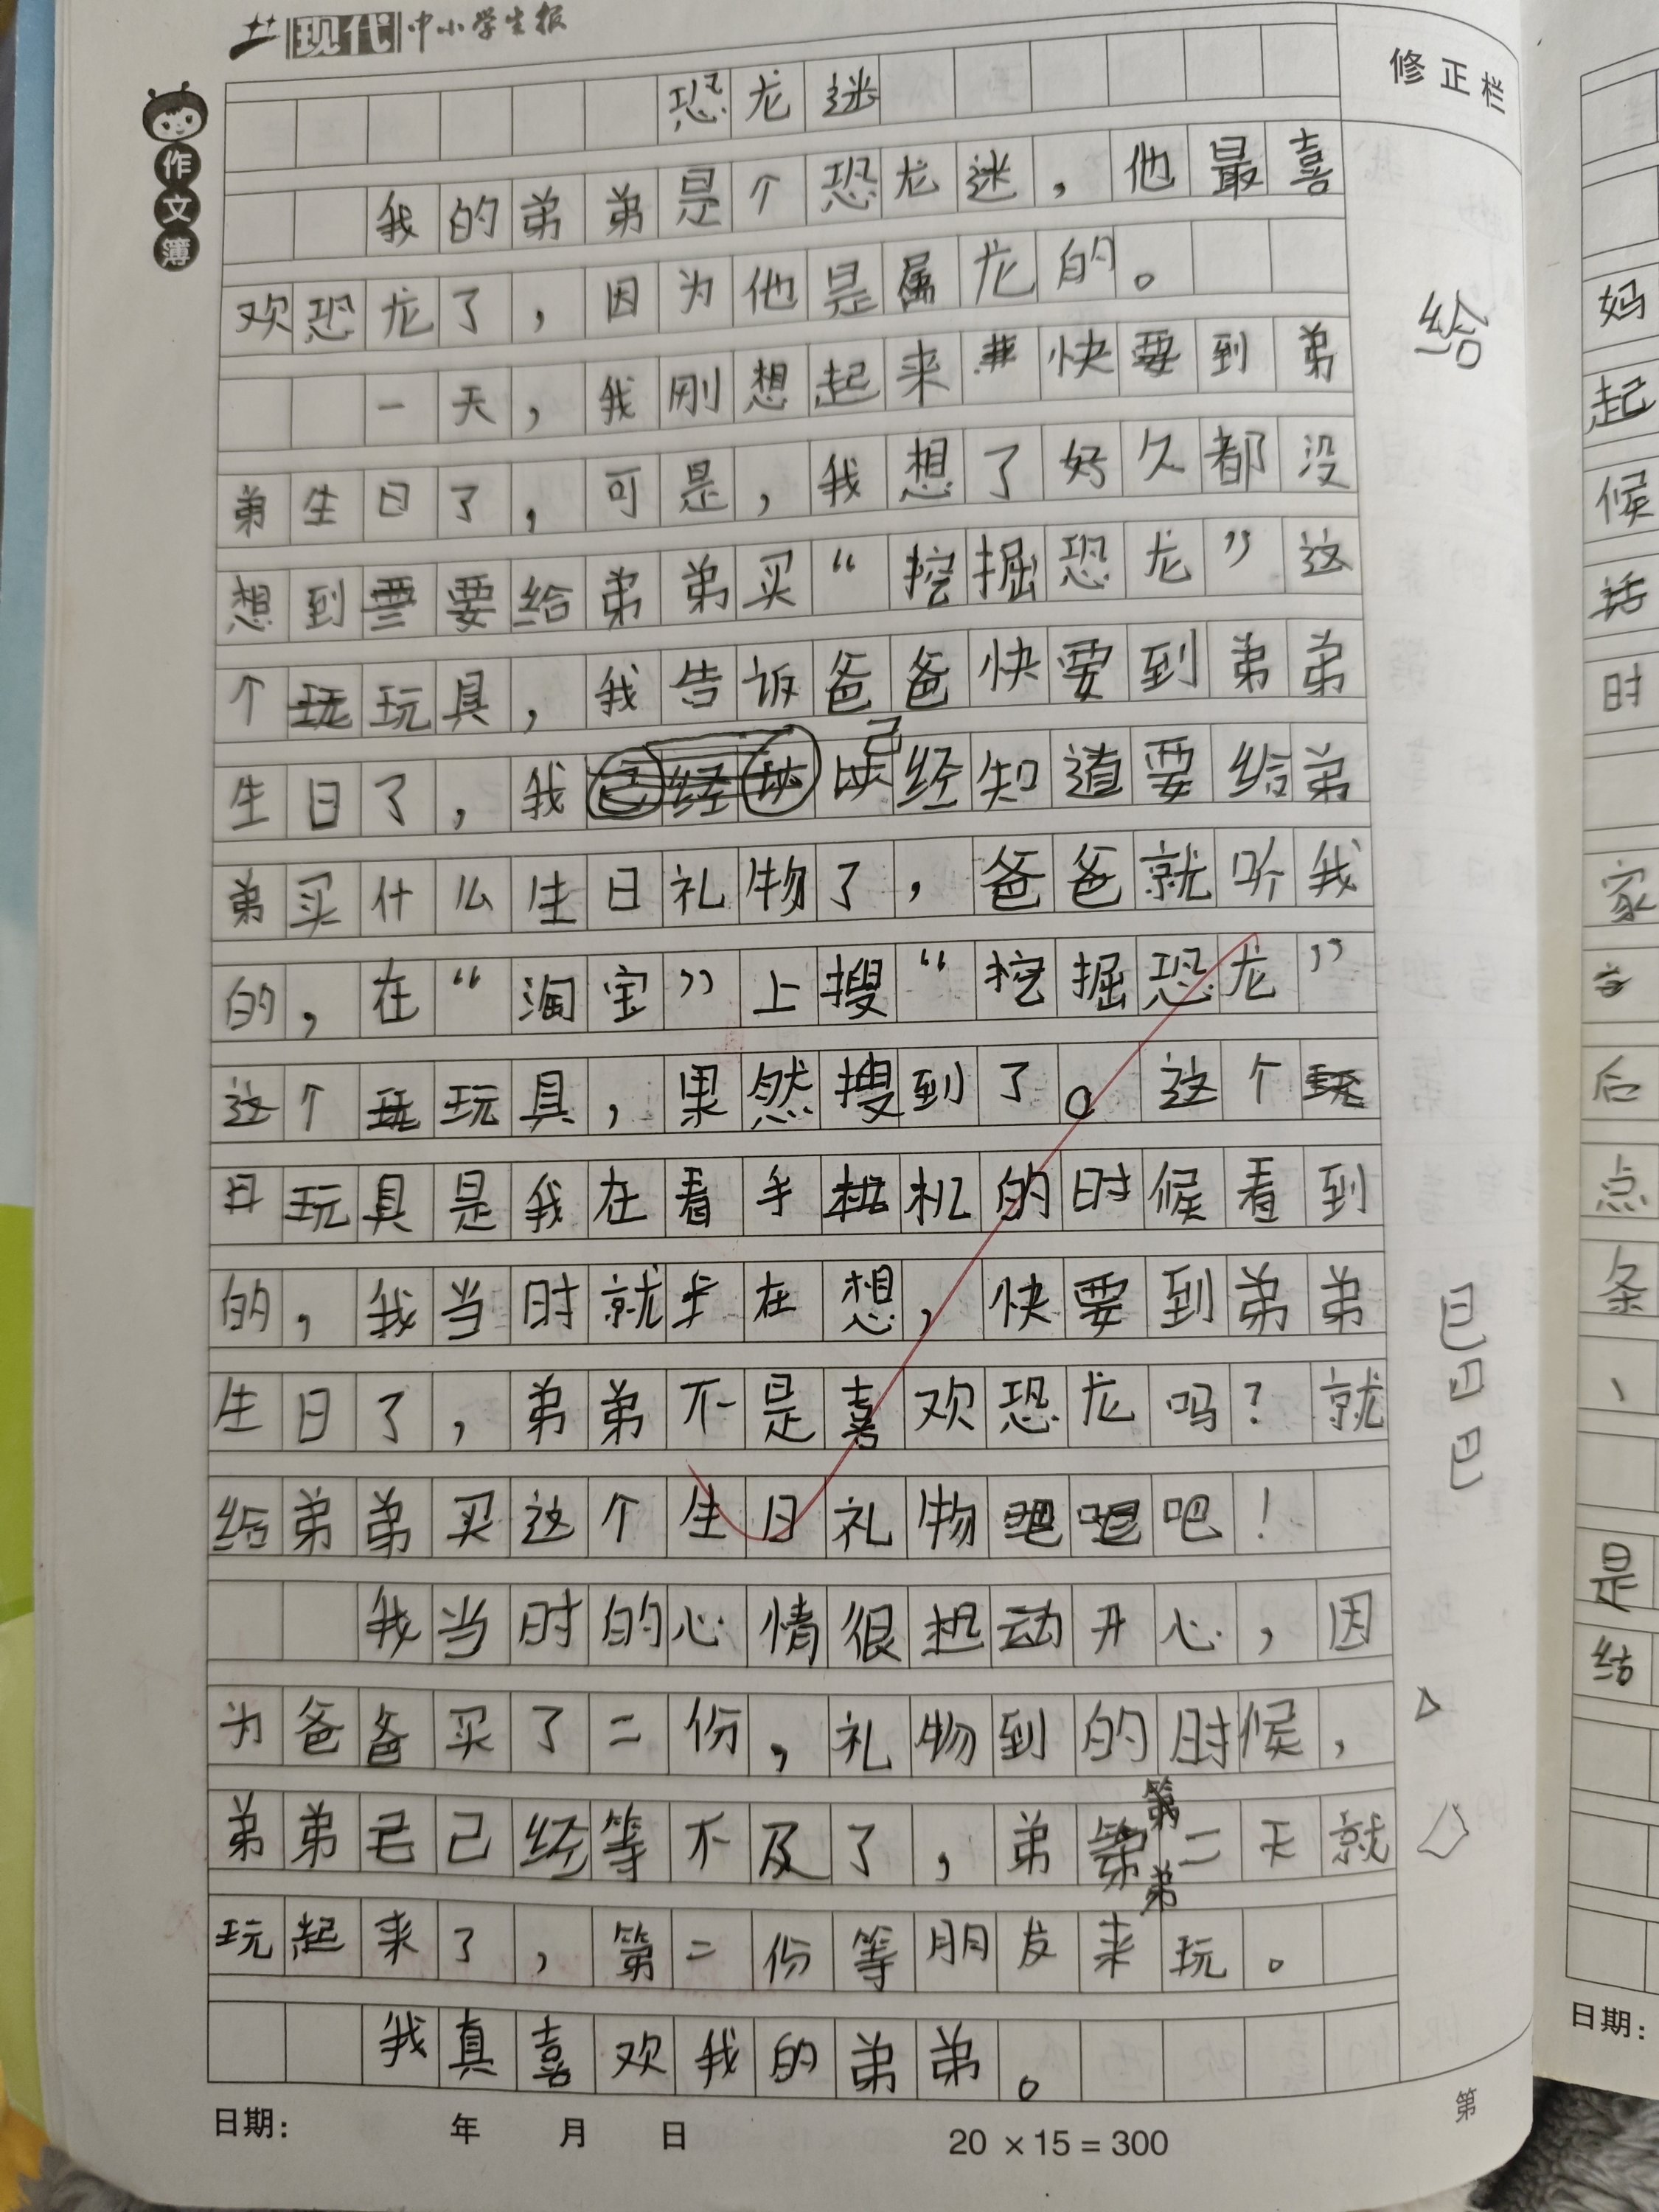 现代 中小学生报
作文簿
修正栏
恐龙迷
我的弟弟是个恐龙迷，他最喜
欢恐龙了，因为他是属龙的。
一天，我刚想起来快要到弟
弟生日了，可是，我想了好久都没
想到要给弟弟买“挖掘恐龙”这
个玩具，我告诉爸爸快要到弟弟
生日了，我己经知道要给弟
弟买什么生日礼物了，爸爸就听我
的，在“淘宝”上搜“挖掘恐龙”
这个玩具，果然搜到了。这个
玩具是我在看手机的时候看到
的，我当时就在想，快要到弟弟
生日了，弟弟不是喜欢恐龙吗？就
给弟弟买这个生日礼物吧！
我当时的心情很激动开心，因
为爸爸买了二份，礼物到的时候，
弟弟己经等不及了，弟弟第二天就
玩起来了，第二份等朋友来玩。
我真喜欢我的弟弟。
给
巳
巴
日期： 年 月 日
20 × 15 = 300
第
妈
起
候
括
时
家
后
点
条
、
是
结
日期：